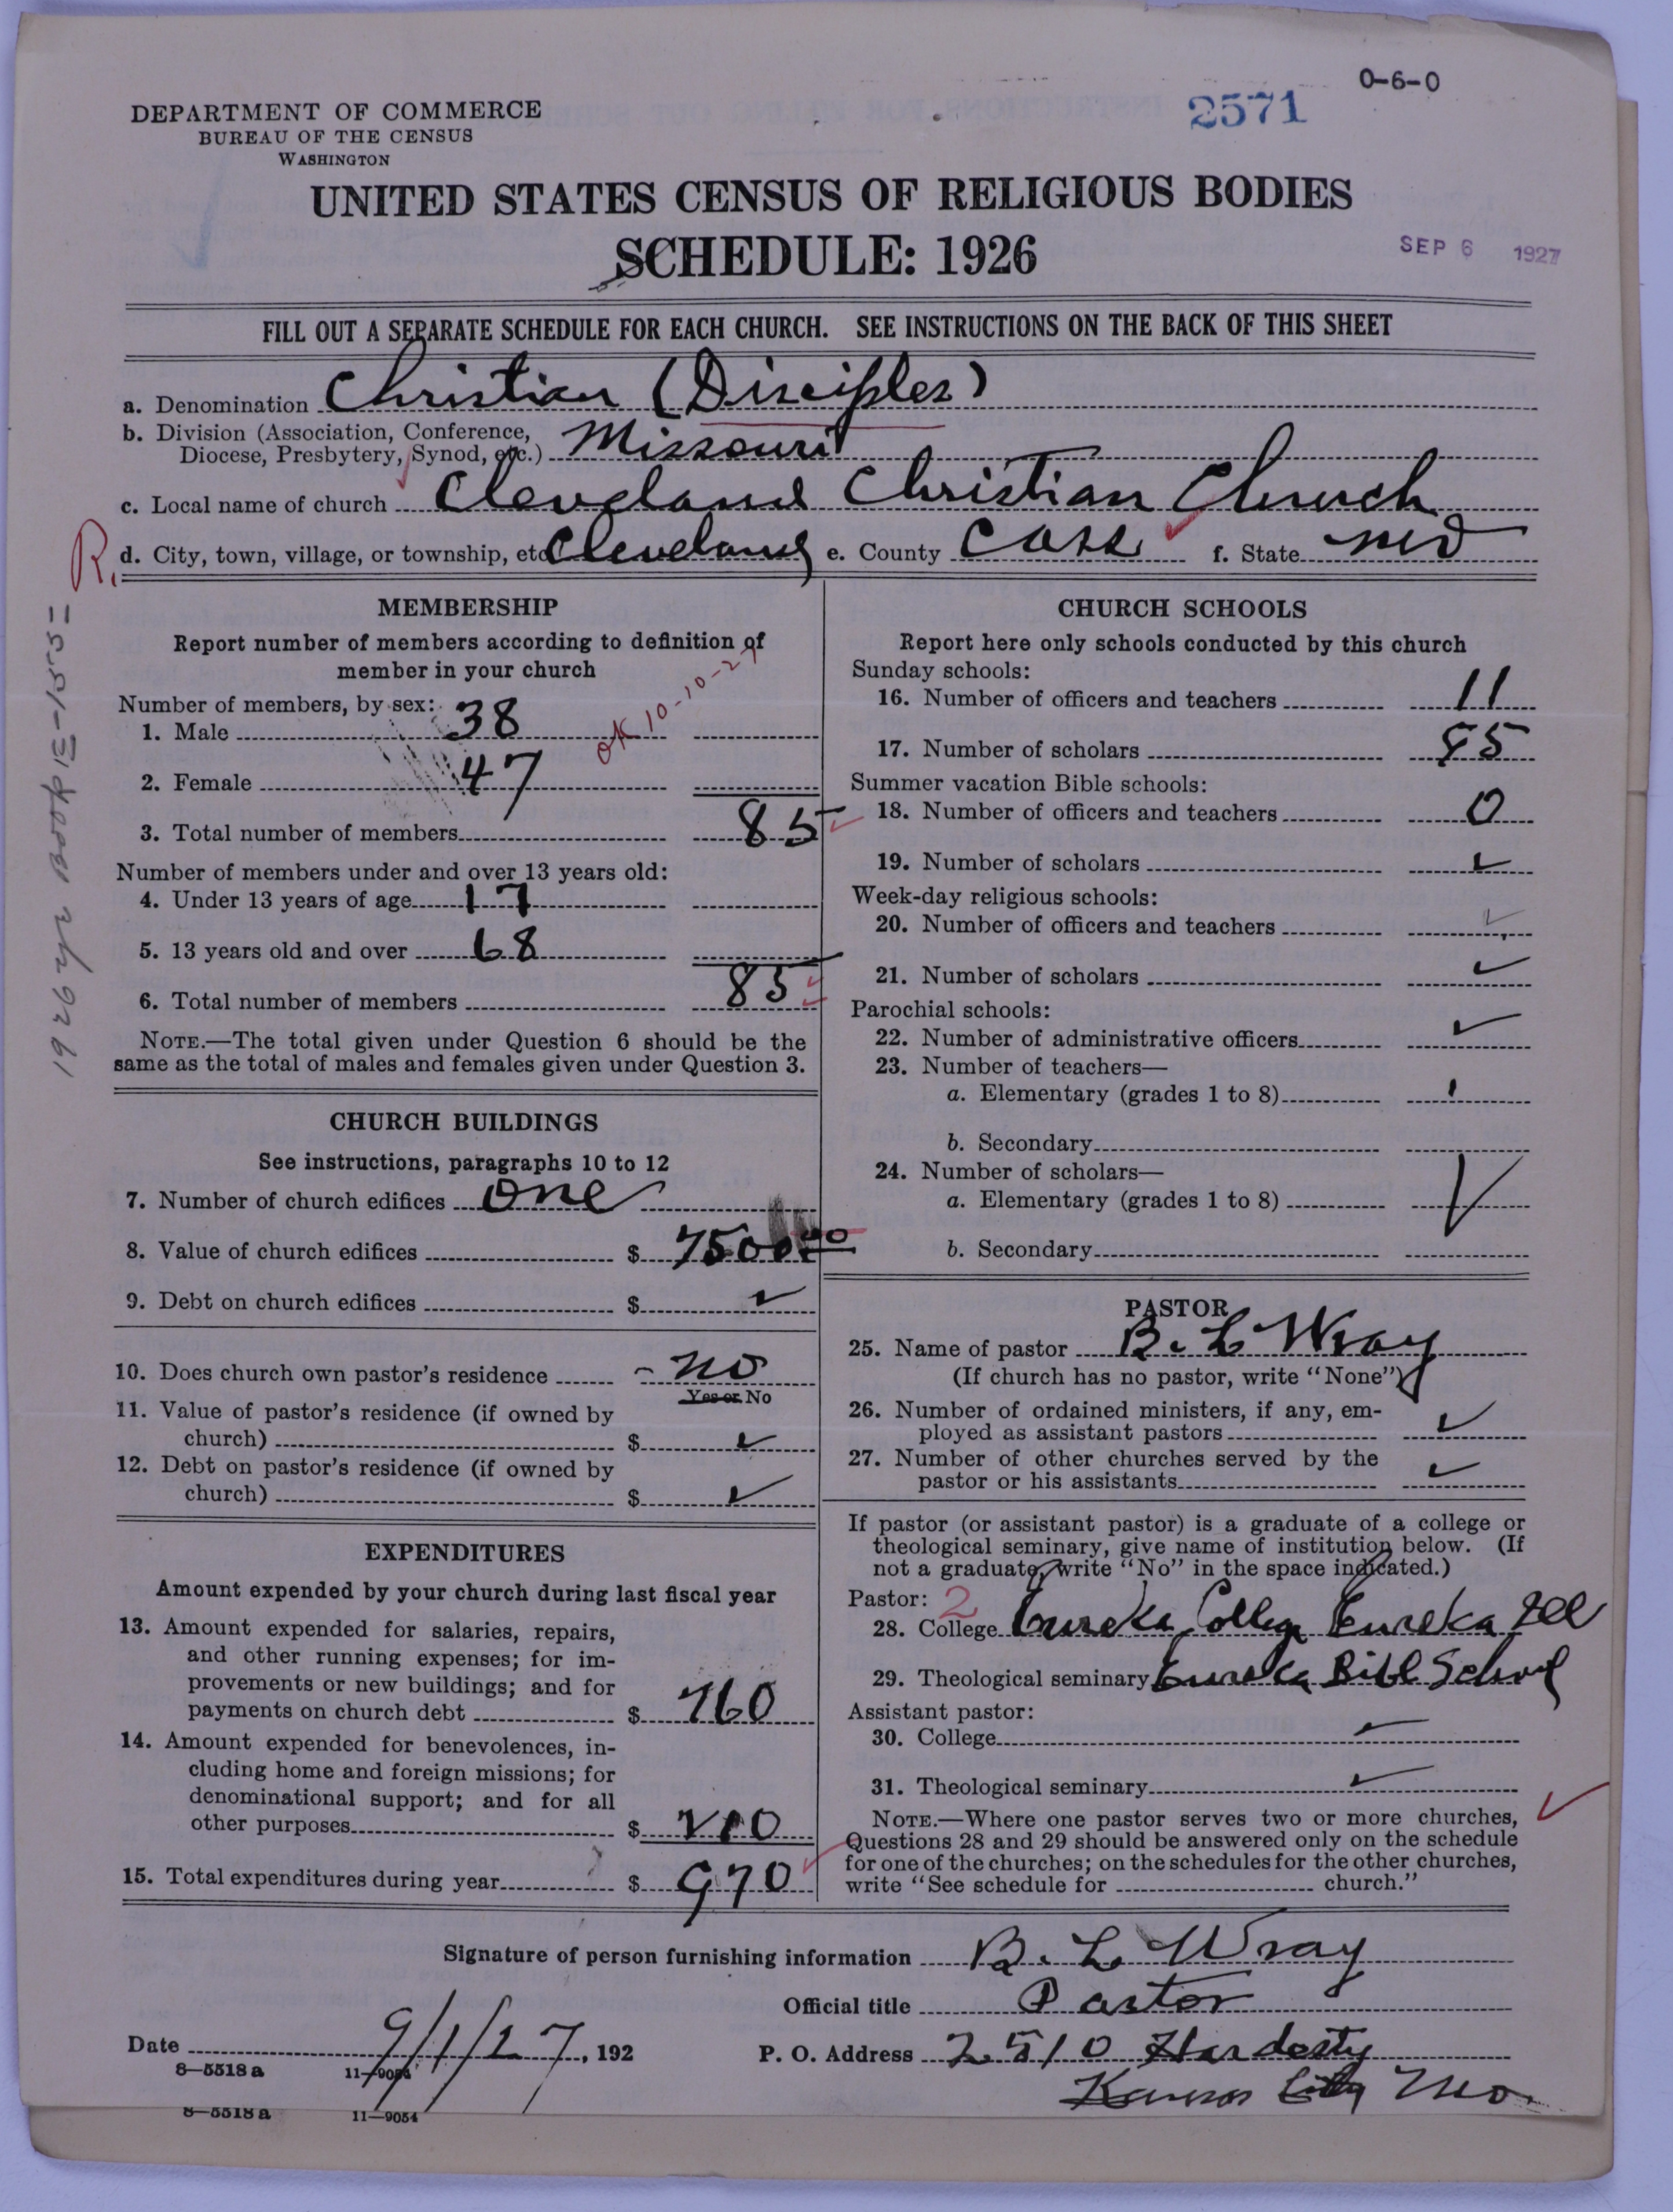 0-6-0
2571
DEPARTMENT OF COMMERCE
BUREAU OF THE CENSUS
WASHINGTON
UNITED STATES CENSUS OF RELIGIOUS BODIES
SCHEDULE: 1926
SEP 6 1927
FILL OUT A SEPARATE SCHEDULE FOR EACH CHURCH. SEE INSTRUCTIONS ON THE BACK OF THIS SHEET
a. Denomination Christian (Disciples)
b. Division (Association, Conference,
Diocese, Presbytery, Synod, etc.) Missouri
c. Local name of church Cleveland Christian Church
R. d. City, town, village, or township, etc Cleveland e. County Cass f. State Mo
1926 yr Book E-155=
MEMBERSHIP
Report number of members according to definition of
member in your church
OK 10-10-27
Number of members, by sex:
1. Male 38
2. Female 47
3. Total number of members 85
Number of members under and over 13 years old:
4. Under 13 years of age 17
5. 13 years old and over 68
6. Total number of members 85
NOTE.—The total given under Question 6 should be the
same as the total of males and females given under Question 3.
CHURCH BUILDINGS
See instructions, paragraphs 10 to 12
7. Number of church edifices One
8. Value of church edifices $ 7500 00
9. Debt on church edifices $ ✓
10. Does church own pastor's residence - no
Yes or No
11. Value of pastor's residence (if owned by
church) $ ✓
12. Debt on pastor's residence (if owned by
church) $ ✓
EXPENDITURES
Amount expended by your church during last fiscal year
13. Amount expended for salaries, repairs,
and other running expenses; for im-
provements or new buildings; and for
payments on church debt $ 760
14. Amount expended for benevolences, in-
cluding home and foreign missions; for
denominational support; and for all
other purposes $ 210
15. Total expenditures during year $ 970
CHURCH SCHOOLS
Report here only schools conducted by this church
Sunday schools:
16. Number of officers and teachers 11
17. Number of scholars
Summer vacation Bible schools:
18. Number of officers and teachers 0
19. Number of scholars ✓
Week-day religious schools:
20. Number of officers and teachers ✓
21. Number of scholars ✓
Parochial schools:
22. Number of administrative officers ✓
23. Number of teachers—
a. Elementary (grades 1 to 8)
b. Secondary
24. Number of scholars—
a. Elementary (grades 1 to 8) ✓
b. Secondary
PASTOR
25. Name of pastor B. L Wray
(If church has no pastor, write "None")
26. Number of ordained ministers, if any, em-
ployed as assistant pastors ✓
27. Number of other churches served by the
pastor or his assistants ✓
If pastor (or assistant pastor) is a graduate of a college or
theological seminary, give name of institution below. (If
not a graduate, write "No" in the space indicated.)
Pastor: 2
28. College Eureka College Eureka Ill
29. Theological seminary Eureka Bible School
Assistant pastor:
30. College ✓
31. Theological seminary ✓
NOTE.—Where one pastor serves two or more churches,
Questions 28 and 29 should be answered only on the schedule
for one of the churches; on the schedules for the other churches,
write "See schedule for church."
Signature of person furnishing information B. L Wray
Official title Pastor
Date 9/1/27, 192 P. O. Address 2510 Hardesty
Kansas City Mo
8—5518 a 11—9054
8—5518 a 11—9054